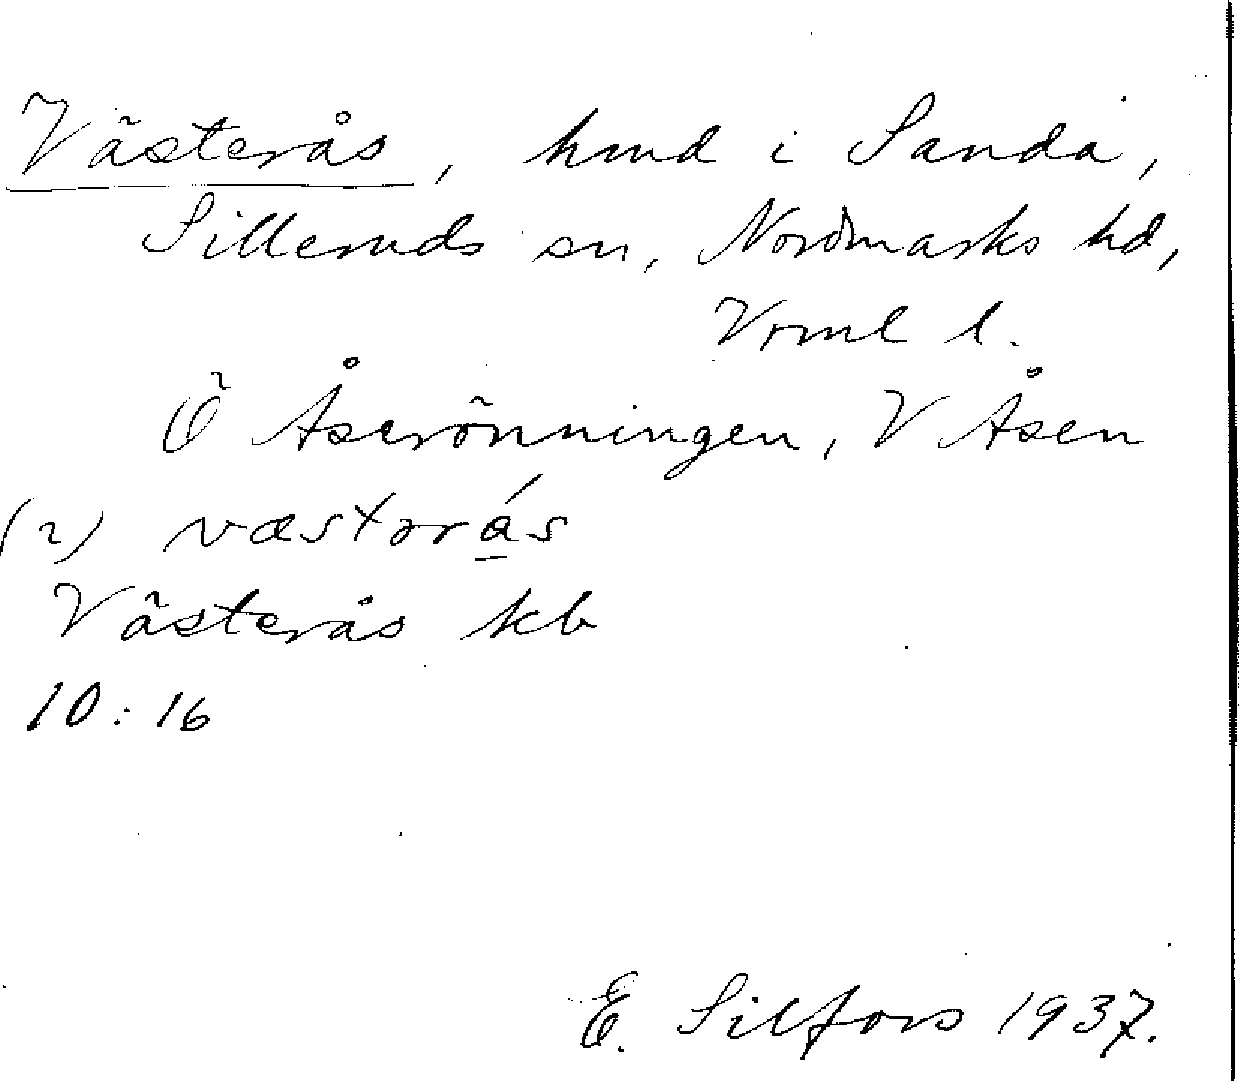 Västerås, hmd i Sanda,
Silleruds sn, Nordmarks hd,
Vrml l.
Ö Åserönningen, V Åsen
(2) væstərás
Västerås kb
10:16
E. Silfors 1937.